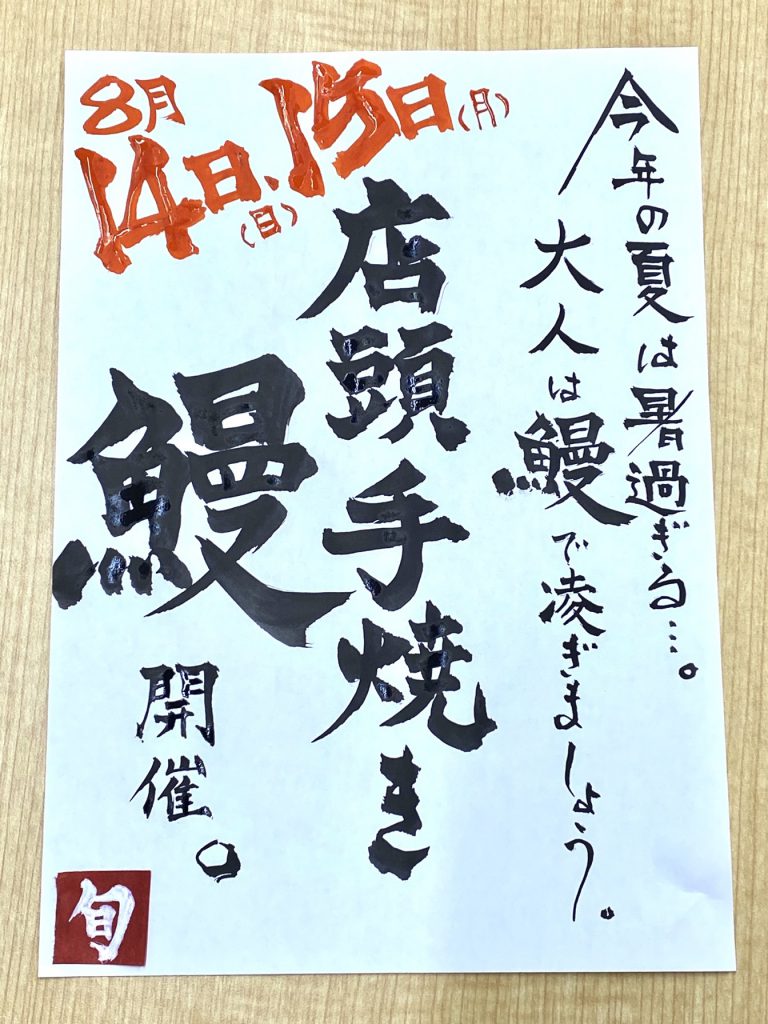 今年の夏は暑過ぎる…。
大人は鰻で凌ぎましょう。
8月14日(日)、15日(月)
店頭手焼き
鰻
開催。
旬